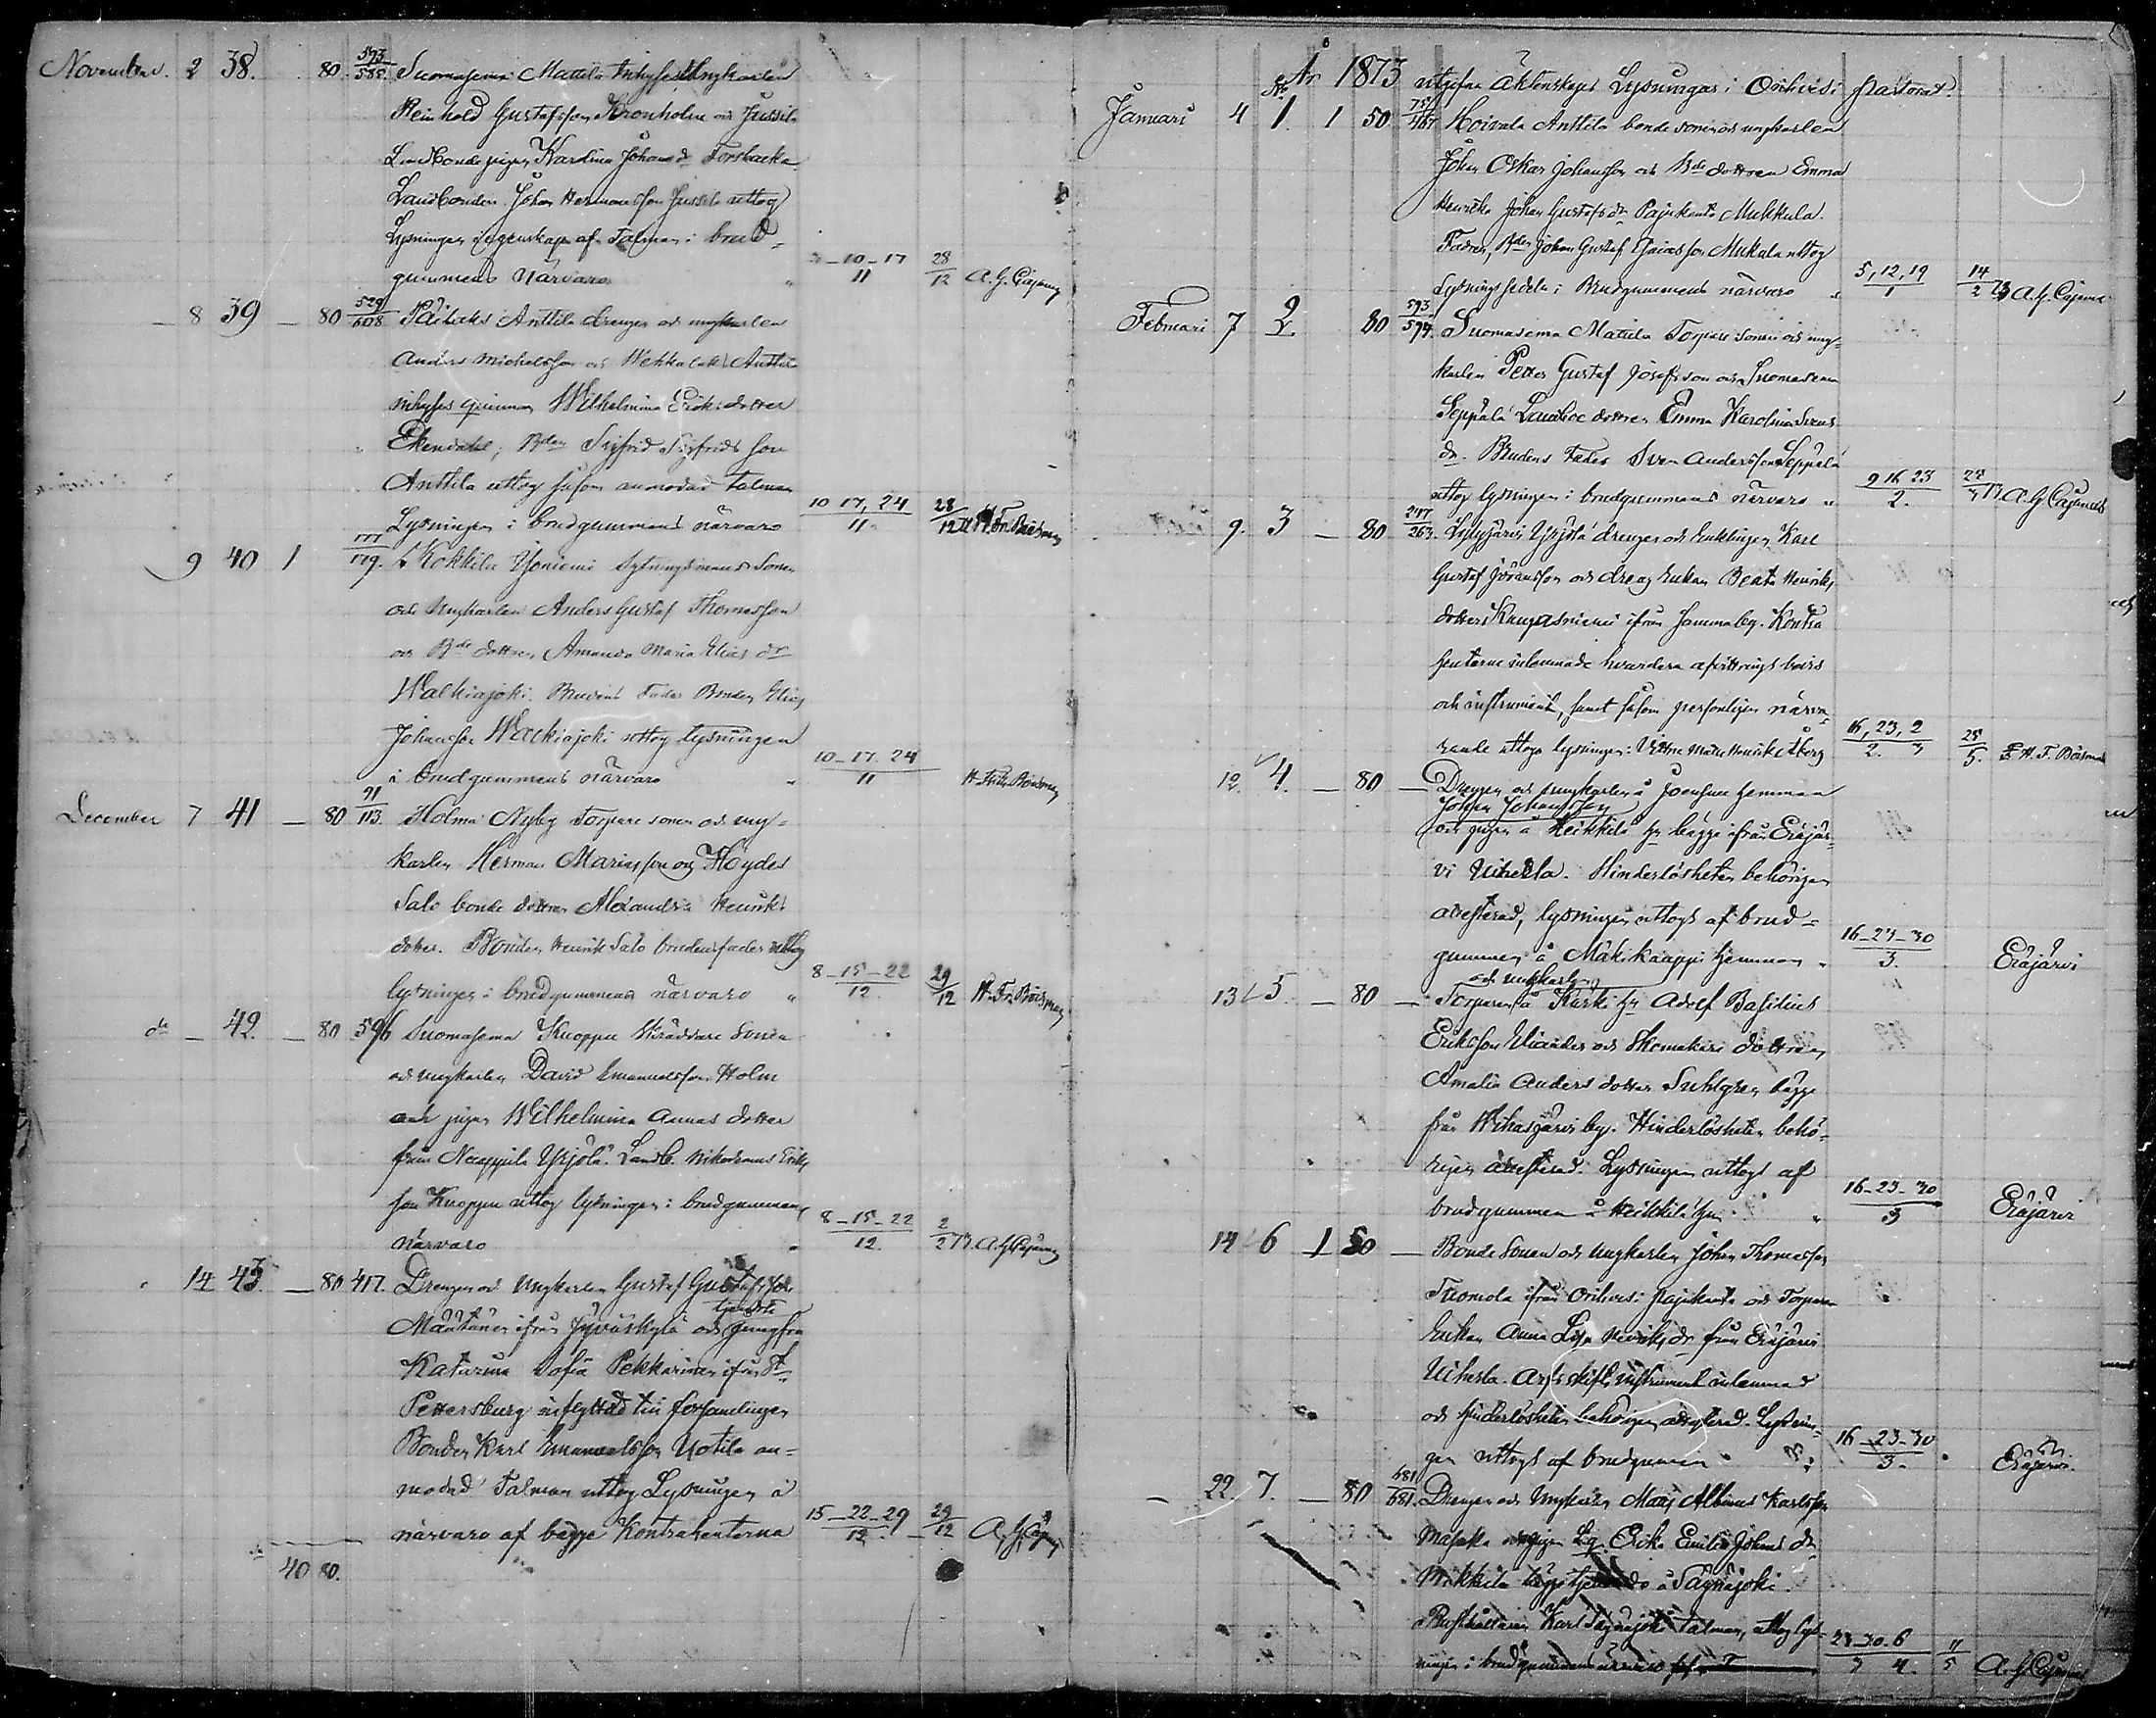 November. 2 38. 80. 593/585. Suomasema Mattila Inhyses Ungkarlen
Reinhold Gustafsson Kronholm och Jussila
Landbonde pigan Karolina Johans dr Forsbacka
Landbonden Johan Hermansson Jussila uttog
Lysningen i egenskap af Talman i brud-
gummens närvaro 3-10-17/11 28/12 A. G. Cajanus
— 8 39 — 80 529/608 Päilahs Anttila drengen och ungkarlen
Anders Michelsson och Wehkalaks Anttila
inhyses qvinnan Wilhelmina Eriks dotter
Ekendahl; Bden Sigfrid Sigfrids son
Anttila uttog såsom anmodad talman
Lysningen i brudgummens närvaro 10 17, 24/11 28/12 H. Fr. Boisman
9 40 1 177/179. Kokkila Yöniemi Sytningsmans Sonen
och Ungkarlen Anders Gustaf Thomasson
och Bde dottren Amanda Maria Elias dr
Walkiajoki. Brudens Fader Bonden Elias
Johansson Walkiajoki uttog lysningen
i brudgummens närvaro 10-17 24/11 H. Fr. Boisman
December 7 41 — 80 91/113. Holma Nyby Torpare sonen och ung-
karlen Herman Mariasson och Höydes
Salo bonde dottren Alexandra Henriks
dotter. Bonden Henrik Salo brudens fader uttog
lysningen i brudgummens närvaro 8-15-22/12. 29/12 H. Fr. Boisman
do — 42. — 80 596 Suomasema Knoppu Skräddare Sonen
och ungkarlen David Emanuelsson Holm
och pigan Wilhelmina Annas dotter
från Naappila Yrjölä. Landb. Nikodemus Eriks
son Knoppu uttog lysningen i brudgummens
närvaro 8-15-22/12. 2/2 73. A. G. Cajanus
14 43. — 80 417. Drengen och Ungkarlen Gustaf Gustafsson
Mäntänen ifrån Jyväskylä och tjenste jungfru
Katarina Sofia Pekkarinen ifrån St.
Pettersburg inflyttad till församlingen
Bonden Karl Emanuelsson Uotila an-
modad Talman uttog Lysningen i
närvaro af begge Kontrahenterna 15-22-29/12 29/12 A. G. Cajanus
40 80.
År 1873 utgifna Äktenskaps Lysningar i Orihvesi pastorat.
Januari 4 No 1. 1 50 751/767 Hoivala Anttila bonde sonen och ungkarlen
Johan Oskar Johansson och Bde dottren Emma
Henrika Johan Gustafs dr Pajukanta Mukkula.
Fadren, Bden Johan Gustaf Mukkula uttog
Lysningssedeln i Brudgummens närvaro 5, 12, 19/1 14/2 73 A. G. Cajanus
Februari 7 2. 80 593/594. Suomasema Mattila Torpare sonen och ung-
karlen Petter Gustaf Josefsson och Suomasema
Seppälä Landboe dottren Emma Karolina Svens
dr. Brudens Fader Sven Andersson Seppälä
uttog lysningen i brudgummens närvaro 9 16 23/2. A. G. Cajanus
9. 3 — 80 247/263. Yrjölä drengen och Enklingen Karl
Gustaf Göransson och dreng Enkan Beata Henriks
dotter Kangasniemi ifrån samma by. Kontra
henterne inlemnade hvardera afvittrings bevis
och instrument, samt såsom personligen närva-
rande uttogo lysningen: 16, 23, 2/2. 3 25/5. H. F. Boisman
12. 4. — 80 — Drengen och ungkarlen å Joensuu hemman
Johan Johansson
och pigan å Heikkilä hn bägge ifrån Eräjär-
vi Uiherla. Hinderlösheten behörigen
attesterad, lysningen uttogs af brud-
gummen å Mäkikaappi hemman 16-23-30/3. Eräjärvi
13 5. — 80 — Torparen och ungkarlen å Kärki hn Adolf Basilius
Eriksson Uiander och Skomakare dottren
Amalia Anders dotter Suhlgren bägge
från Wihasjärvi by. Hinderlösheten behö-
rigen attesterad. Lysningen uttogs af
brudgummen å Heikkilä hn 16-23-30/3 Eräjärvi
14 6 1 50 — Bonde Sonen och Ungkarlen Johan Thomasson
Tuomola ifrån Orihvesi Pajukanta och Torpare
Enkan Anna Lisa Henriks dr från Eräjärvi
Uiherla. Arfskifts instrument inlemnad
och hinderlösheten behörigen attesterad. Lysnin-
gen uttogs af brudgummen 16-23-30/3. Eräjärvi.
— 22. 7. — 80 681/681. Drengen och Ungkarlen Maaj Albinus Karlsson
och pigan Erika Emilia Johans dr
Mikkila bägge å Säynäjoki.
Karl Säynäjoki Talman, uttog lys-
ningen i brudgummens närvaro 23-30. 6/3 4. 11/5 A. G. Cajanus